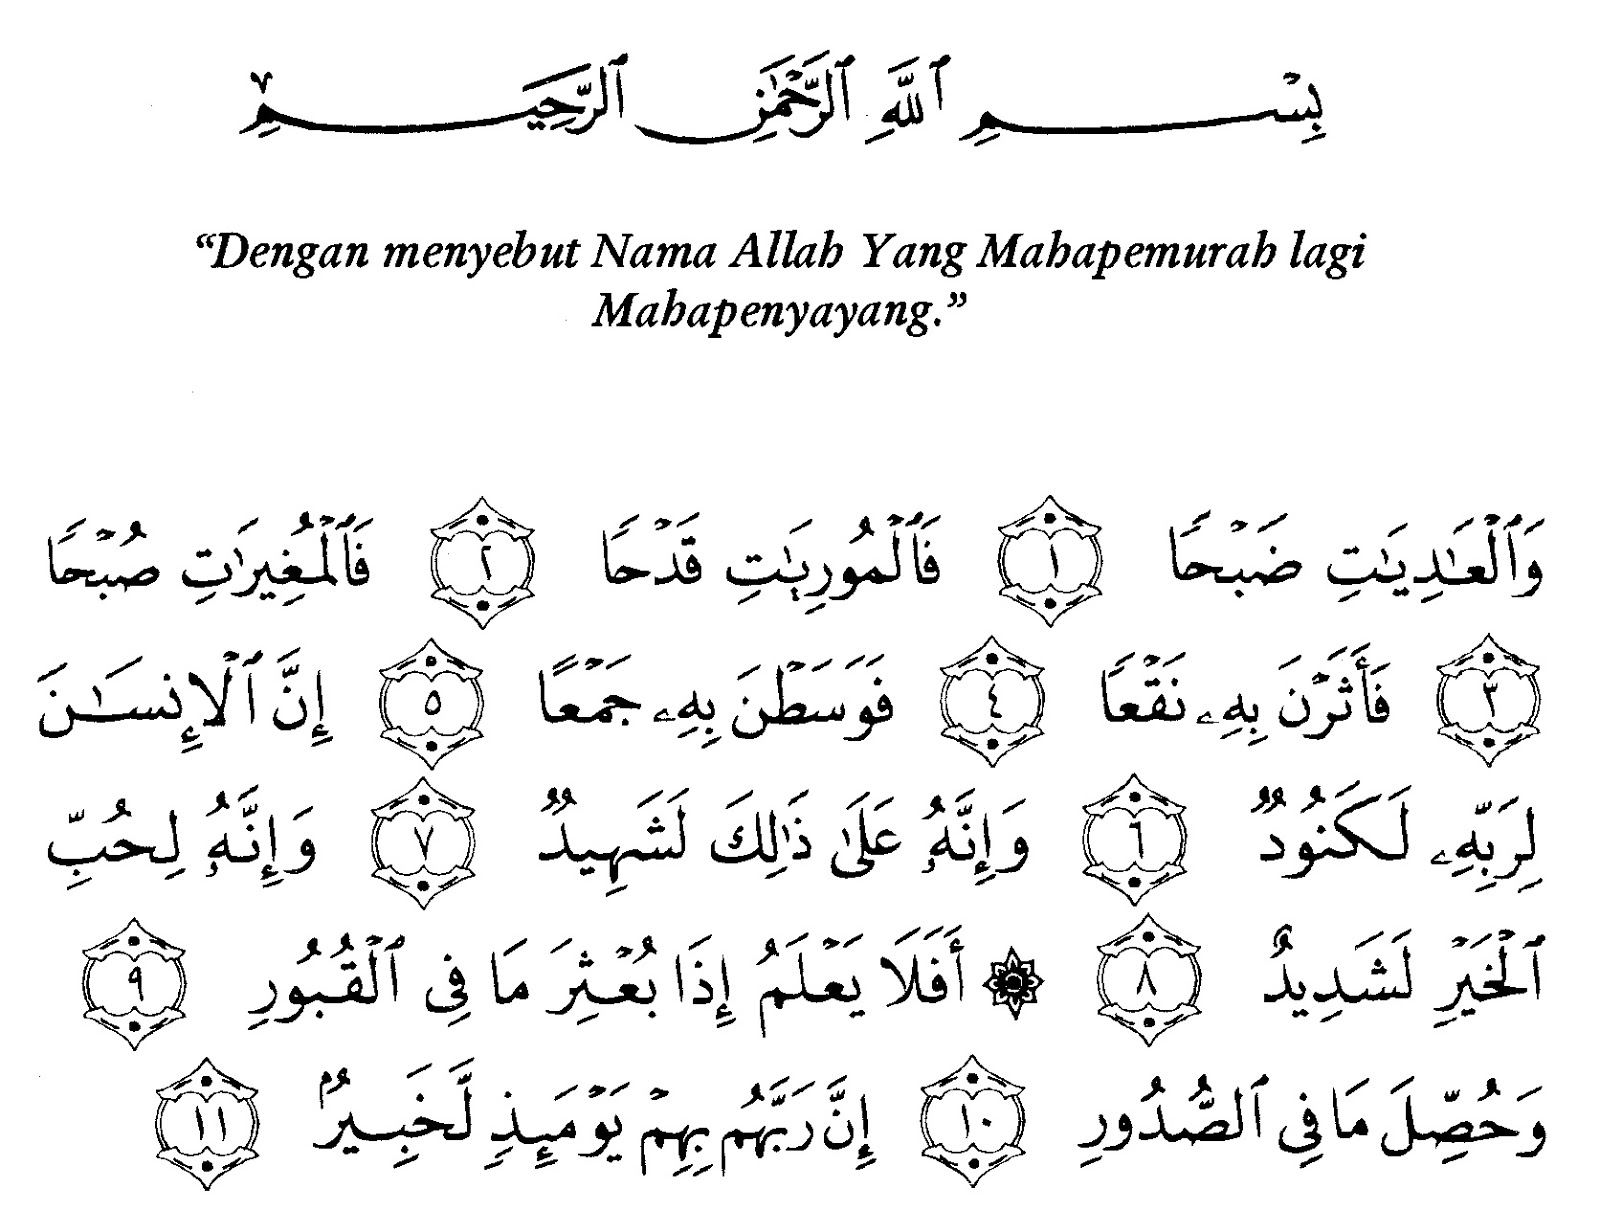 بِسْمِ ٱللَّهِ ٱلرَّحْمَٰنِ ٱلرَّحِيمِ
“Dengan menyebut Nama Allah Yang Mahapemurah lagi
Mahapenyayang.”
وَٱلْعَٰدِيَٰتِ ضَبْحًا ١ فَٱلْمُورِيَٰتِ قَدْحًا ٢ فَٱلْمُغِيرَٰتِ صُبْحًا
٣ فَأَثَرْنَ بِهِۦ نَقْعًا ٤ فَوَسَطْنَ بِهِۦ جَمْعًا ٥ إِنَّ ٱلْإِنسَٰنَ
لِرَبِّهِۦ لَكَنُودٌ ٦ وَإِنَّهُۥ عَلَىٰ ذَٰلِكَ لَشَهِيدٌ ٧ وَإِنَّهُۥ لِحُبِّ
ٱلْخَيْرِ لَشَدِيدٌ ٨ ۞ أَفَلَا يَعْلَمُ إِذَا بُعْثِرَ مَا فِى ٱلْقُبُورِ ٩
وَحُصِّلَ مَا فِى ٱلصُّدُورِ ١٠ إِنَّ رَبَّهُم بِهِمْ يَوْمَئِذٍ لَّخَبِيرٌۢ ١١